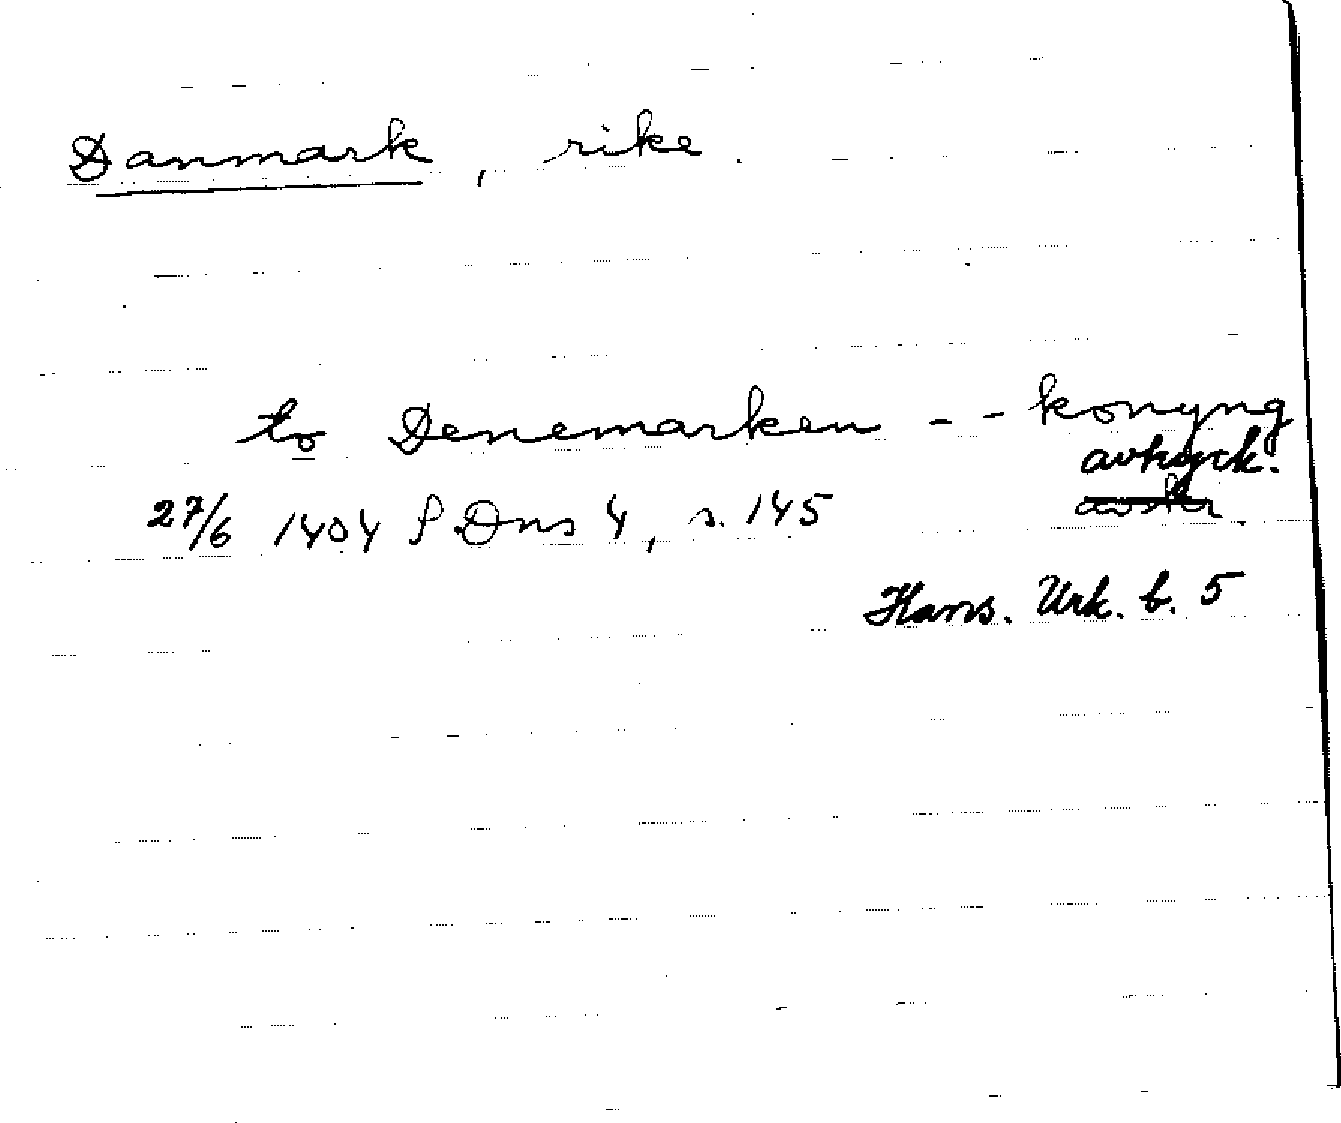 Danmark, rike.
to Denemarken - - konyng
avtryck.
27/6 1404 SDns 4, s. 145
Hans. Urk. b. 5